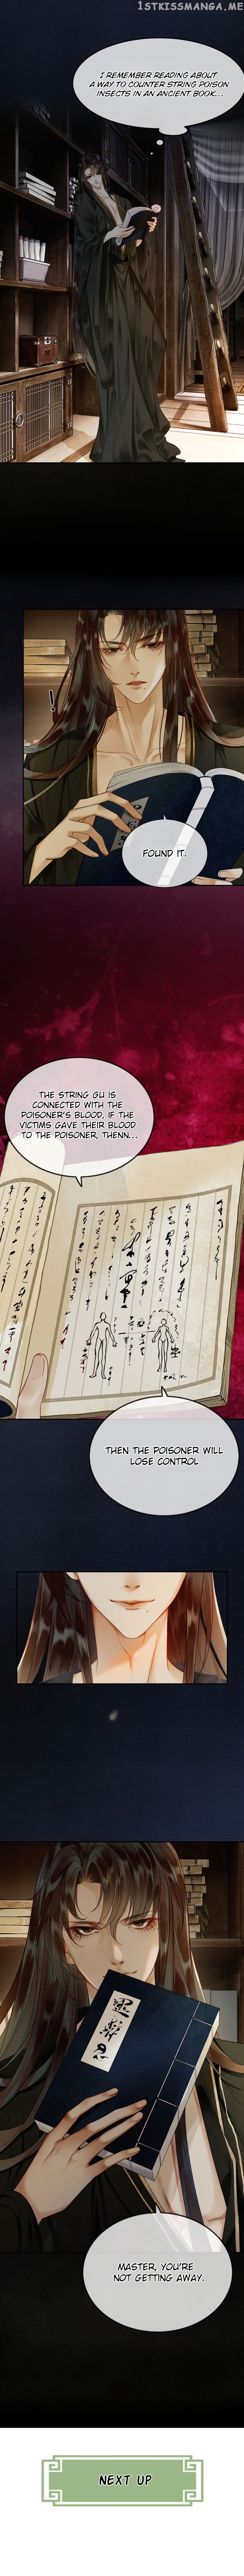 1STKISSMANGA.ME
I REMEMBER READING ABOUT
A WAY TO COUNTER STRING POISON
INSECTS IN AN ANCIENT BOOK...
!
FOUND IT.
THE STRING GU IS
CONNECTED WITH THE
POISONER'S BLOOD, IF THE
VICTIMS GAVE THEIR BLOOD
TO THE POISONER, THENN...
THEN THE POISONER WILL
LOSE CONTROL
MASTER, YOU'RE
NOT GETTING AWAY.
NEXT UP